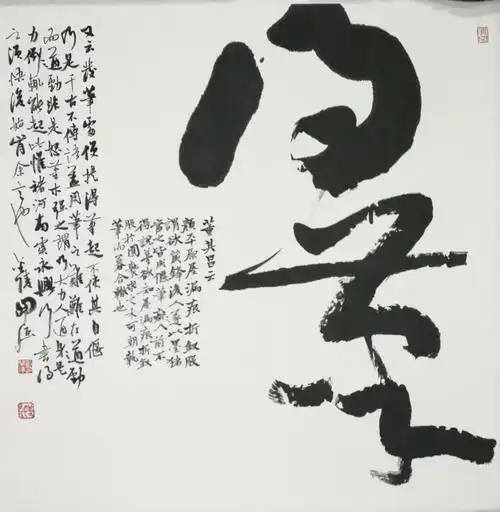 董其昌云
顏平原屋漏痕折釵股
謂欲藏鋒後人遂以墨豬
當之皆成偃筆癡人前不
得說夢欲知屋漏痕折釵
股於圓熟求之未可朝執
筆而暮合轍也
又云發筆處便提得筆起不使其自偃
乃是千古不傳語蓋用筆之難難在遒勁
而遒勁非是怒筆木強之謂乃大力人通身是
力倒輒能起此惟褚河南虞永興行書得
之須悟後始肯余言也